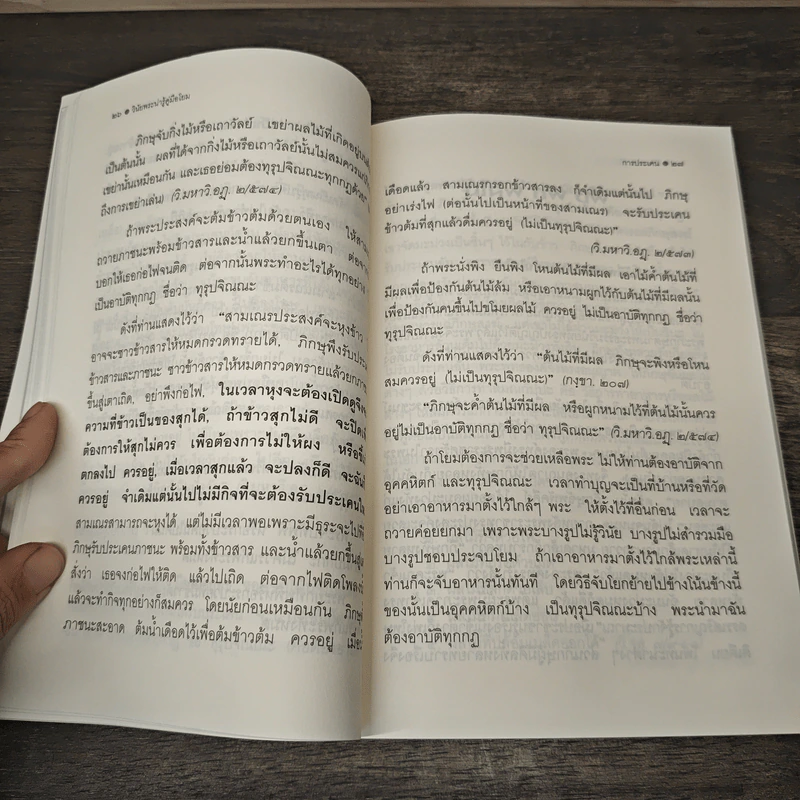 ๒๖ ● วินัยพระน่ารู้คู่มือโยม
ภิกษุจับกิ่งไม้หรือเถาวัลย์ เขย่าผลไม้ที่เกิดอยู่บน
เป็นต้นนั้น ผลที่ได้จากกิ่งไม้หรือเถาวัลย์นั้นไม่สมควรแก่
เขย่านั้นเหมือนกัน และเธอย่อมต้องทุรุปจิณณะทุกกฏด้วย
ถึงการเขย่าเล่น) (วิ.มหาวิ.อฏฺ. ๒/๕๗๔)
ถ้าพระประสงค์จะต้มข้าวต้มด้วยตนเอง ให้
ถวายภาชนะพร้อมข้าวสารและน้ำแล้วยกขึ้นเตา ต่อจาก
บอกให้เธอก่อไฟจนติด ต่อจากนั้นพระทำอะไรได้ทุกอย่าง
เป็นอาบัติทุกกฏ ชื่อว่า ทุรุปจิณณะ
ดังที่ท่านแสดงไว้ว่า “สามเณรประสงค์จะหุงข้าว
อาจจะซาวข้าวสารให้หมดกรวดทรายได้, ภิกษุพึงรับประเคน
ข้าวสารและภาชนะ ซาวข้าวสารให้หมดกรวดทรายแล้วยกภาชนะ
ขึ้นสู่เตาเถิด, อย่าพึงก่อไฟ, ในเวลาหุงจะต้องเปิดดูจึงรู้
ความที่ข้าวเป็นของสุกได้, ถ้าข้าวสุกไม่ดี จะปิด
ต้องการให้สุกไม่ควร เพื่อต้องการไม่ให้ผง หรือ
ตกลงไป ควรอยู่, เมื่อเวลาสุกแล้ว จะปลงก็ดี จะฉัน
ควรอยู่ จำเดิมแต่นั้นไปไม่มีกิจที่จะต้องรับประเคนใหม่
สามเณรสามารถจะหุงได้ แต่ไม่มีเวลาพอเพราะมีธุระจะไปที่
ภิกษุรับประเคนภาชนะ พร้อมทั้งข้าวสาร และน้ำแล้วยกขึ้นสู่
สั่งว่า เธอจงก่อไฟให้ติด แล้วไปเถิด ต่อจากไฟติดโพลง
แล้วจะทำกิจทุกอย่างก็สมควร โดยนัยก่อนเหมือนกัน ภิกษุ
ภาชนะสะอาด ต้มน้ำเดือดไว้เพื่อต้มข้าวต้ม ควรอยู่ เมื่อ
การประเคน ● ๒๗
เดือดแล้ว สามเณรกรอกข้าวสารลง ก็จำเดิมแต่นั้นไป ภิกษุ
อย่าเร่งไฟ (ต่อนั้นไปเป็นหน้าที่ของสามเณร) จะรับประเคน
ข้าวต้มที่สุกแล้วดื่มควรอยู่ (ไม่เป็นทุรุปจิณณะ)”
(วิ.มหาวิ.อฏฺ. ๒/๕๗๓)
ถ้าพระนั่งพิง ยืนพิง โหนต้นไม้ที่มีผล เอาไม้ค้ำต้นไม้ที่
มีผลเพื่อป้องกันต้นไม้ล้ม หรือเอาหนามผูกไว้กับต้นไม้ที่มีผลนั้น
เพื่อป้องกันคนขึ้นไปขโมยผลไม้ ควรอยู่ ไม่เป็นอาบัติทุกกฏ ชื่อว่า
ทุรุปจิณณะ
ดังที่ท่านแสดงไว้ว่า “ต้นไม้ที่มีผล ภิกษุจะพิงหรือโหน
สมควรอยู่ (ไม่เป็นทุรุปจิณณะ)” (กงฺขา. ๒๐๗)
“ภิกษุจะค้ำต้นไม้ที่มีผล หรือผูกหนามไว้ที่ต้นไม้นั้นควร
อยู่ไม่เป็นอาบัติทุกกฏ ชื่อว่า ทุรุปจิณณะ” (วิ.มหาวิ.อฏฺ. ๒/๕๗๔)
ถ้าโยมต้องการจะช่วยเหลือพระ ไม่ให้ท่านต้องอาบัติจาก
อุคคหิตก์ และทุรุปจิณณะ เวลาทำบุญจะเป็นที่บ้านหรือที่วัด
อย่าเอาอาหารมาตั้งไว้ใกล้ๆ พระ ให้ตั้งไว้ที่อื่นก่อน เวลาจะ
ถวายค่อยยกมา เพราะพระบางรูปไม่รู้วินัย บางรูปไม่สำรวมมือ
บางรูปชอบประจบโยม ถ้าเอาอาหารมาตั้งไว้ใกล้พระเหล่านี้
ท่านก็จะจับอาหารนั้นทันที โดยวิธีจับโยกย้ายไปข้างโน้นข้างนี้
ของนั้นเป็นอุคคหิตก์บ้าง เป็นทุรุปจิณณะบ้าง พระนำมาฉัน
ต้องอาบัติทุกกฏ